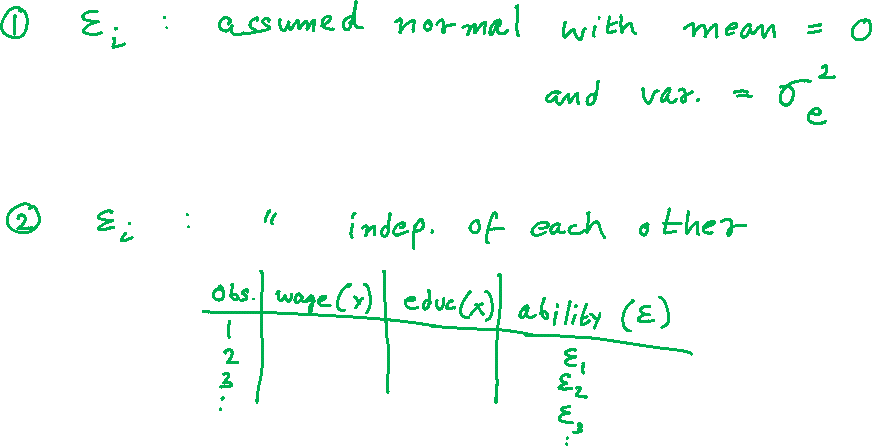 ① εᵢ : assumed normal with mean = 0
and var. = σₑ²
② εᵢ : " indep. of each other
obs. wage(x) educ(x) ability (ε)
1
2 ε₁
3 ε₂
⋮ ε₃
⋮